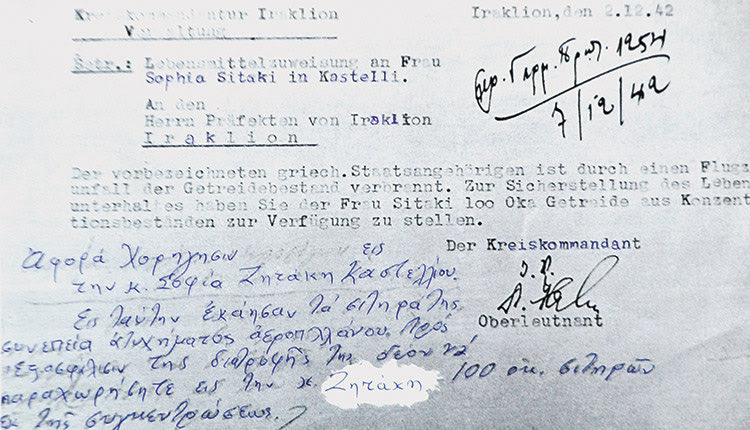 Kreiskommandantur Iraklion
Verwaltung
Iraklion, den 2.12.42
Betr.: Lebensmittelzuweisung an Frau
Sophia Sitaki in Kastelli.
An den
Herrn Präfekten von Iraklion
Iraklion
Γερμ. Πρωτ. 1254
7/12/42
Der vorbezeichneten griech.Staatsangehörigen ist durch einen Flugz
unfall der Getreidebestand verbrannt. Zur Sicherstellung des Leben
unterhaltes haben Sie der Frau Sitaki 100 Oka Getreide aus Konzent
tionsbeständen zur Verfügung zu stellen.
Der Kreiskommandant
Oberleutnant
Αφορά Χορήγησιν εις
την κ. Σοφία Ζητάκη Καστελλίου.
Εις ταύτην εκάησαν τα σιτηρά της
συνεπεία ατυχήματος αεροπλάνου. Προς
εξασφάλισιν της διατροφής της δέον να
παραχωρήσητε εις την κ. Ζητάκη 100 οκ. σιτηρών
εκ της συγκεντρώσεως.